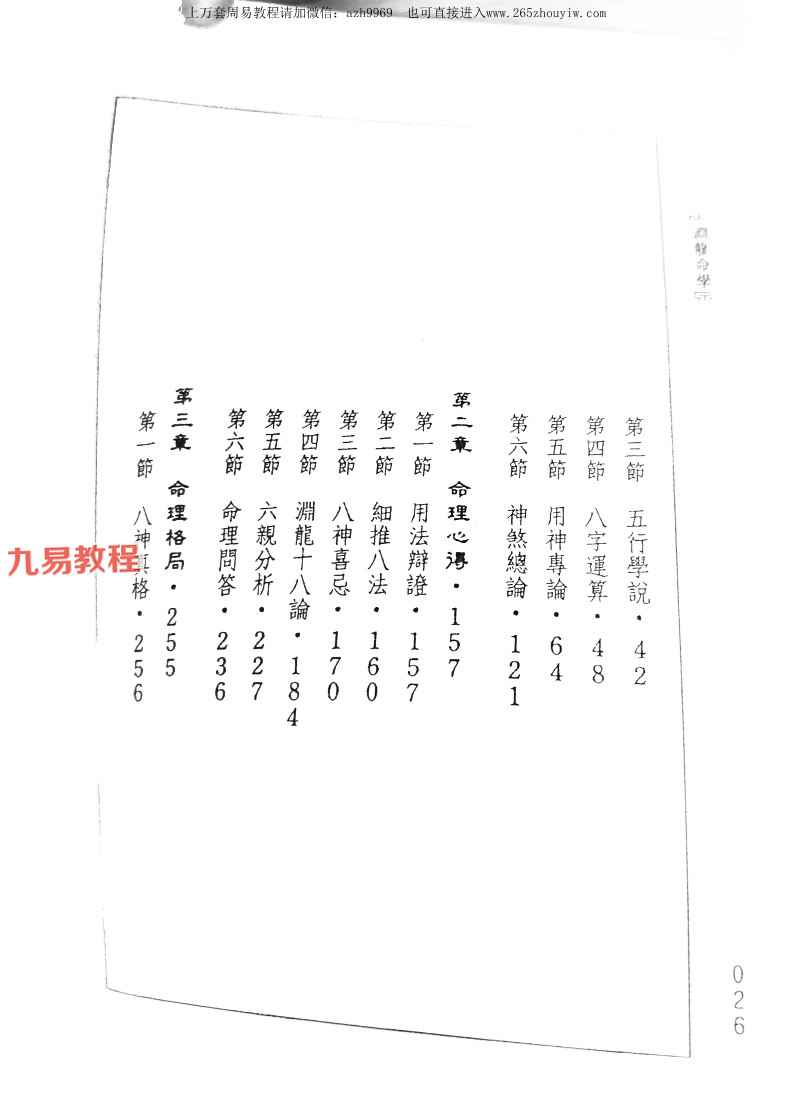 上万套周易教程请加微信：azh9969 也可直接进入www.265zhouyiw.com
第三節 五行學說・42
第四節 八字運算・48
第五節 用神專論・64
第六節 神煞總論・121
第二章 命理心得・157
第一節 用法辯證・157
第二節 細推八法・160
第三節 八神喜忌・170
第四節 淵龍十八論・184
第五節 六親分析・227
第六節 命理問答・236
第三章 命理格局・255
第一節 八神真格・256
九易教程
026